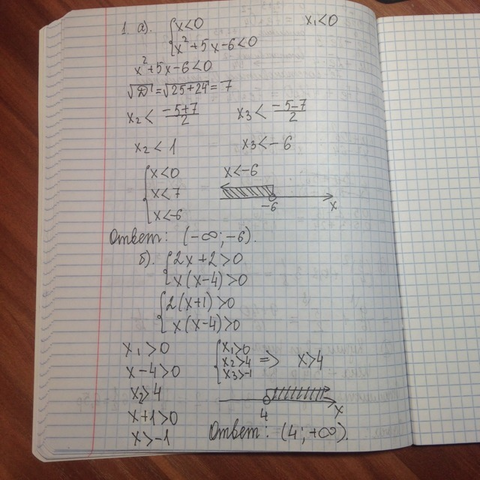 1. а). { x<0        x₁<0
x²+5x-6<0
x²+5x-6<0
√D = √25+24 = 7
x₂ < (-5+7)/2    x₃ < (-5-7)/2
x₂ < 1    x₃ < -6
{ x<0    x<-6
x<7
x<-6    -6    x
Ответ: (-∞;-6).
б). { 2x+2>0
x(x-4)>0
{ 2(x+1)>0
x(x-4)>0
x₁>0    { x₁>0
x-4>0    x₂>4 => x>4
x₂>4    x₃>-1
x+1>0    4    x
x>-1    Ответ: (4;+∞).